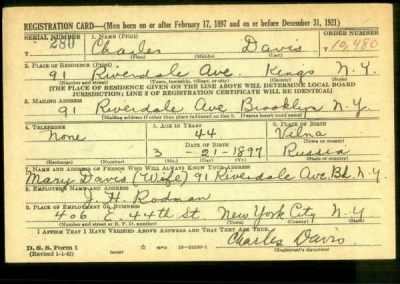 REGISTRATION CARD—(Men born on or after February 17, 1897 and on or before December 31, 1921)
SERIAL NUMBER 1. NAME (Print) ORDER NUMBER
280 Charles Davis 10,480
(First) (Middle) (Last)
2. PLACE OF RESIDENCE (Print)
91 Riverdale Ave. Kings N.Y.
(Number and street) (Town, township, village, or city) (County) (State)
[THE PLACE OF RESIDENCE GIVEN ON THE LINE ABOVE WILL DETERMINE LOCAL BOARD
JURISDICTION; LINE 2 OF REGISTRATION CERTIFICATE WILL BE IDENTICAL]
3. MAILING ADDRESS
91 Riverdale Ave Brooklyn N.Y.
[Mailing address if other than place indicated on line 2. If same insert word same]
4. TELEPHONE 5. AGE IN YEARS 6. PLACE OF BIRTH
None 44 Vilna
DATE OF BIRTH (Town or county)
3 - 21 - 1897 Russia
(Exchange) (Number) (Mo.) (Day) (Yr.) (State or country)
7. NAME AND ADDRESS OF PERSON WHO WILL ALWAYS KNOW YOUR ADDRESS
Mary Davis (Wife) 91 Riverdale Ave. Bk. N.Y.
8. EMPLOYER'S NAME AND ADDRESS
J. H. Rodman
9. PLACE OF EMPLOYMENT OR BUSINESS
406 E. 44th St. New York City N.Y.
(Number and street or R. F. D. number) (Town) (County) (State)
I AFFIRM THAT I HAVE VERIFIED ABOVE ANSWERS AND THAT THEY ARE TRUE.
D. S. S. Form 1
(Revised 1-1-42) (over) GPO Charles Davis
(Registrant's signature)